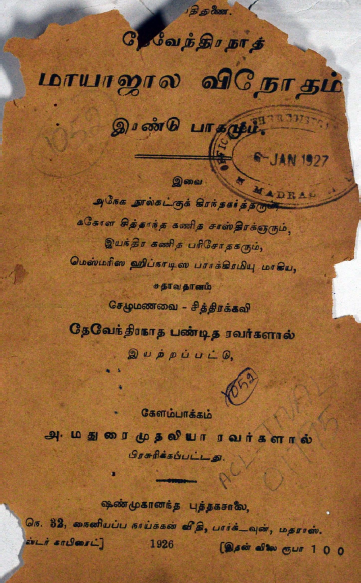 தேவேந்திரநாத்
மாயாஜால விநோதம்
இரண்டு பாகமும்.
6-JAN 1927
MADRAS
இவை
அநேக நூல்கட்குக் கிரந்தகர்த்தரும்,
ககோள சித்தாந்த கணித சாஸ்திரக்ஞரும்,
இயந்திர கணித பரிசோதகரும்,
மெஸ்மரிஸ ஹிப்னாடிஸ பராக்கிரமியு மாகிய,
சதாவதானம்
செழுமணவை - சித்திரக்கவி
தேவேந்திரநாத பண்டித ரவர்களால்
இயற்றப்பட்டு,
1052
கேளம்பாக்கம்
அ. மதுரைமுதலியா ரவர்களால்
பிரசுரிக்கப்பட்டது.
ஷண்முகானந்த புத்தகசாலை,
நெ. 32, நைனியப்ப நாய்க்கன் வீதி, பார்க்டவுன், மதராஸ்.
காபிரைட்] 1926 [இதன் விலை ரூபா 1 0 0